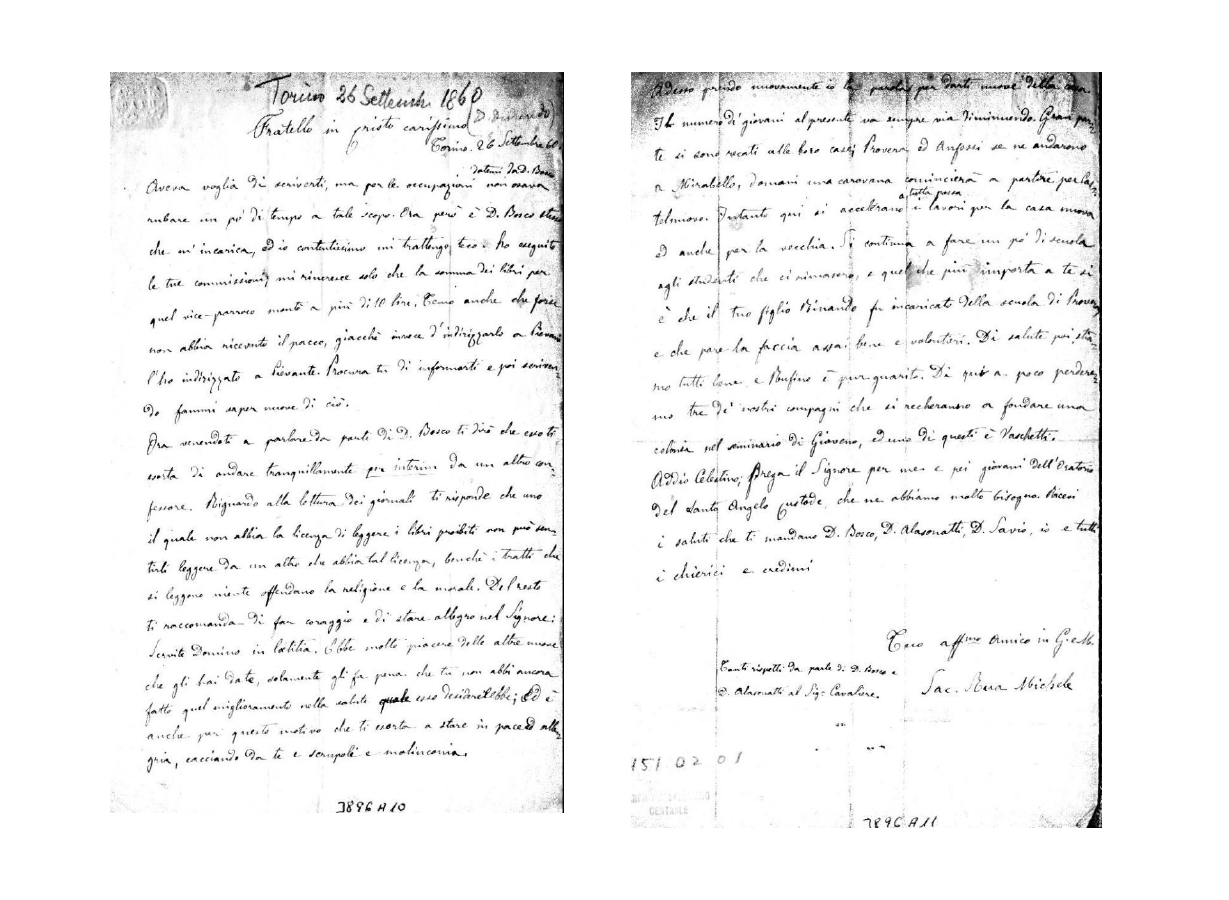 Torino 26 Settemb. 1860
Fratello in Cristo carissimo (D. Durando)
Torino. 26 Settembre 60.
datemi da D. Bosco
Aveva voglia di scriverti, ma per le occupazioni non osava
rubare un po' di tempo a tale scopo. Ora però è D. Bosco stesso
che m'incarica, ed io contentissimo mi trattengo teco. Ho eseguito
le tue commissioni; mi rincresce solo che la somma dei libri per
quel vice-parroco montò a più di 10 lire. Temo anche che forse
non abbia ricevuto il pacco, giacchè invece d'indirizzarlo a Piovani
l'ho indirizzato a Pievante. Procura tu di informarti e poi scriven-
do fammi saper nuove di ciò.
Ora venendoti a parlare da parte di D. Bosco ti dirò che esso ti
esorta di andare tranquillamente per interim da un altro con-
fessore. Riguardo alla lettura dei giornali ti risponde che uno
il quale non abbia la licenza di leggere i libri proibiti non può sen-
tirli leggere da un altro che abbia tal licenza, benchè i tratti che
si leggono niente offendano la religione e la morale. Del resto
ti raccomanda di far coraggio e di stare allegro nel Signore:
Servite Domino in lætitia. Ebbe molto piacere delle altre nuove
che gli hai date, solamente gli fa pena che tu non abbi ancora
fatto quel miglioramento nella salute quale esso desidererebbe; Ed è
anche per questo motivo che ti esorta a stare in pace ed alle-
gria, cacciando da te e scrupoli e malinconia.
3896 A 10
Adesso prendo nuovamente io la parola per darti nuove della casa.
Il numero di giovani al presente va sempre via diminuendo. Gran par-
te si sono recati alle loro case; Provera ed Anfossi se ne andarono
a Mirabello, domani una carovana comincierà a partire per Cas-
a tutta possa
telnuovo. Intanto qui si accelerano i lavori per la casa nuova
ed anche per la vecchia. Si continua a fare un po' di scuola
agli studenti che ci rimasero, e quel che più importa a te si
è che il tuo figlio Binando fu incaricato della scuola di Provera
e che pare la faccia assai bene e volontieri. Di salute poi stia-
mo tutti bene, e Rufino è pur guarito. Di qui a poco perdere-
mo tre de' nostri compagni che si recheranno a fondare una
colonia nel seminario di Giaveno, ed uno di questi è Vaschetti.
Addio Celestino; Prega il Signore per me e pei giovani dell'Oratorio
del Santo Angelo Custode, che ne abbiamo molto bisogno. Ricevi
i saluti che ti mandano D. Bosco, D. Alasonatti, D. Savio, io e tutti
i chierici e credimi
Tuo affmo Amico in G. e M.
Sac. Rua Michele
Tanti rispetti da parte di D. Bosco e
D. Alasonatti al Sig. Cavaliere.
151 02 01
CENTRALE
3896 A 11